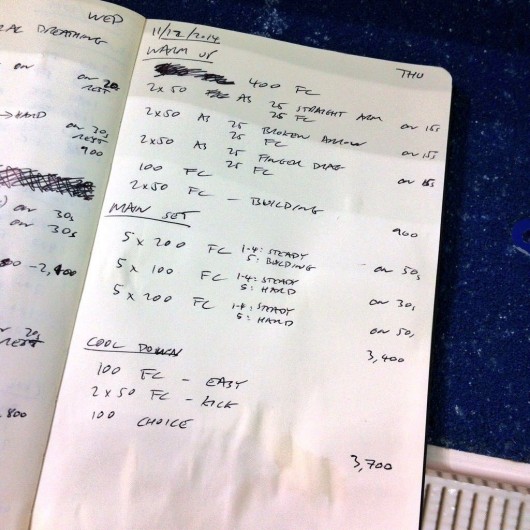 WED
BREATHING
on
on 20s
REST
→ HARD
on 20s
REST
900
on 30s
on 30s
- 2,400
on 20s
REST
,800
11/12/2014
THU
WARM UP
400 FC
2x50 AS 25 STRAIGHT ARM
25 FC
on 15s
2x50 AS 25 BROKEN ARROW
25 FC
on 15s
2x50 AS 25 FINGER DRAG
25 FC
on 15s
100 FC
2x50 FC - BUILDING
900
MAIN SET
5 x 200 FC 1-4: STEADY
5: BUILDING
- on 50s
5 x 100 FC 1-4: STEADY
5: HARD
on 30s
5 x 200 FC 1-4: STEADY
5: HARD
on 50s
3,400
COOL DOWN
100 FC - EASY
2 x 50 FC - KICK
100 CHOICE
3,700